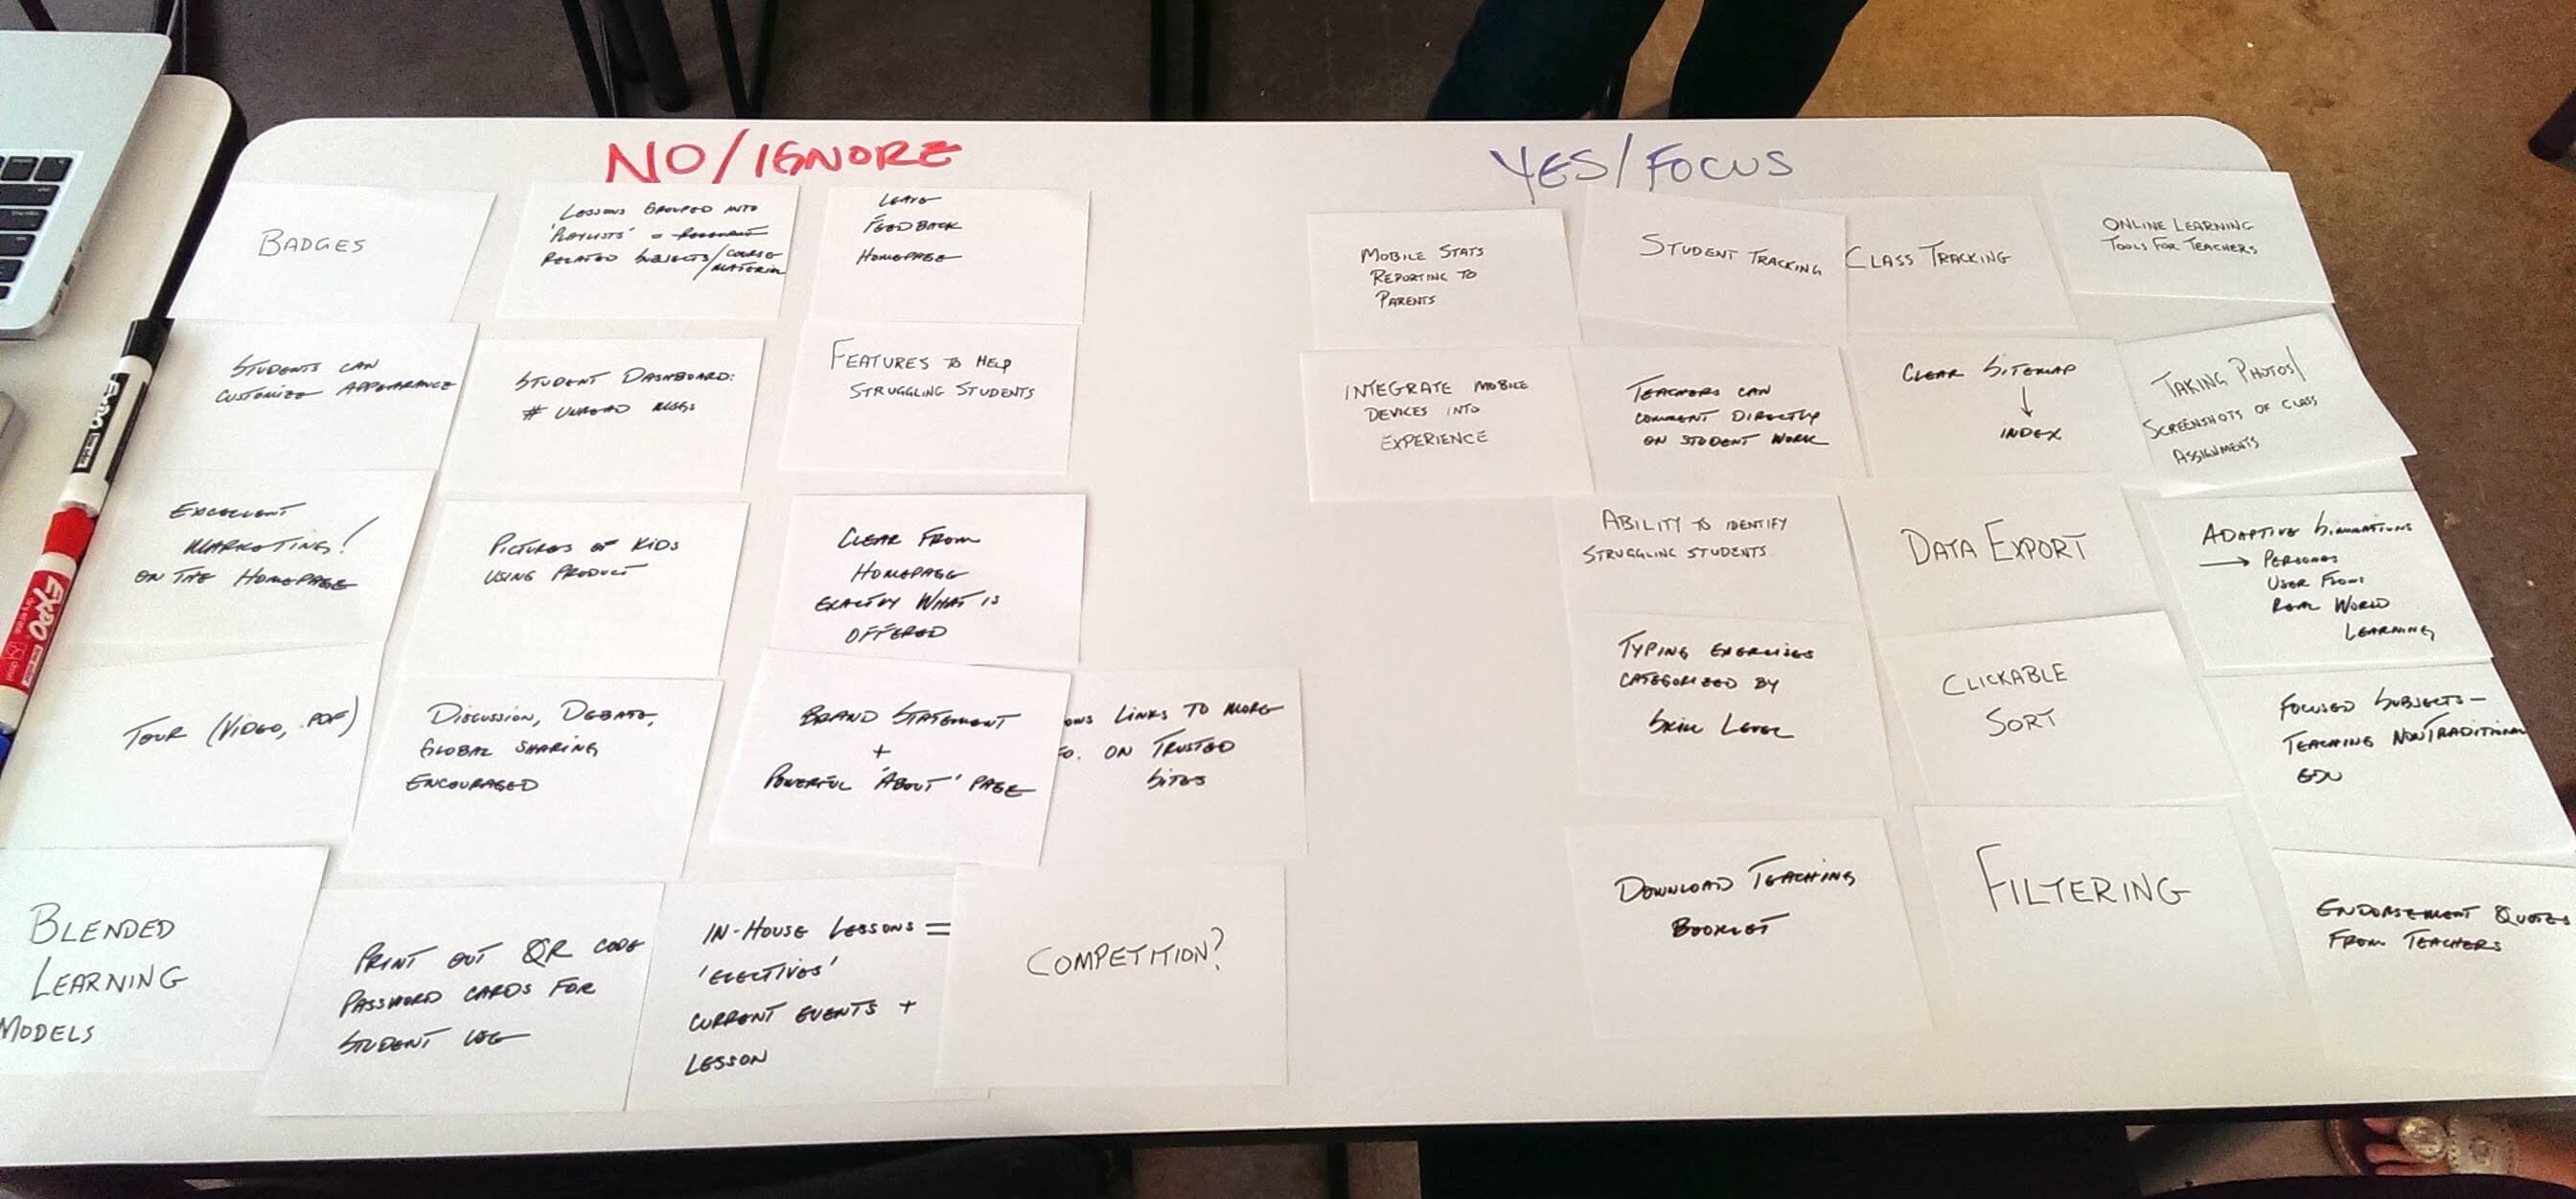 NO/IGNORE
BADGES
LESSONS GROUPED INTO
'PLAYLISTS' =
RELATED SUBJECTS/COURSE
/MATERIAL
LEAVE
FEEDBACK
HOMEPAGE
STUDENTS CAN
CUSTOMIZE APPEARANCE
STUDENT DASHBOARD:
# UNREAD MSGS
FEATURES TO HELP
STRUGGLING STUDENTS
EXCELLENT
MARKETING!
ON THE HOMEPAGE
PICTURES OF KIDS
USING PRODUCT
CLEAR FROM
HOMEPAGE
EXACTLY WHAT IS
OFFERED
TOUR (VIDEO, .PDF)
DISCUSSION, DEBATE,
GLOBAL SHARING
ENCOURAGED
BRAND STATEMENT
+
POWERFUL 'ABOUT' PAGE
LINKS TO MORE
ON TRUSTED
SITES
BLENDED
LEARNING
MODELS
PRINT OUT QR CODE
PASSWORD CARDS FOR
STUDENT LOG
IN-HOUSE LESSONS =
'ELECTIVES'
CURRENT EVENTS +
LESSON
COMPETITION?
YES/FOCUS
MOBILE STATS
REPORTING TO
PARENTS
STUDENT TRACKING
CLASS TRACKING
ONLINE LEARNING
TOOLS FOR TEACHERS
INTEGRATE MOBILE
DEVICES INTO
EXPERIENCE
TEACHERS CAN
COMMENT DIRECTLY
ON STUDENT WORK
CLEAR SITEMAP
↓
INDEX
TAKING PHOTOS/
SCREENSHOTS OF CLASS
ASSIGNMENTS
ABILITY TO IDENTIFY
STRUGGLING STUDENTS
DATA EXPORT
ADAPTIVE SIMULATIONS
→ PERSONAS
USER FLOWS
REAL WORLD
LEARNING
TYPING EXERCISES
CATEGORIZED BY
SKILL LEVEL
CLICKABLE
SORT
FOCUSED SUBJECTS-
TEACHING NONTRADITIONAL
EDU
DOWNLOAD TEACHING
BOOKLET
FILTERING
ENDORSEMENT QUOTES
FROM TEACHERS
EXPO
EXPO